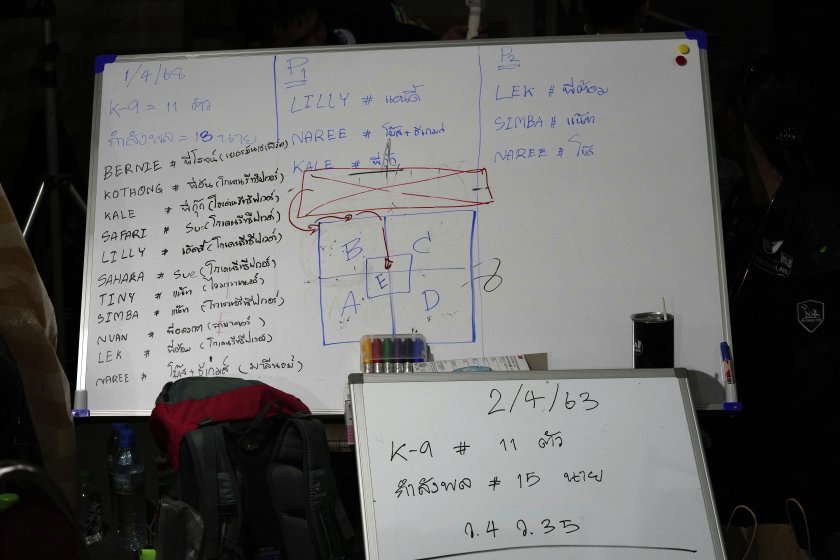 1/4/68
K-9 = 11 ตัว
กำลังพล = 18 นาย
BERNIE # พี่โรจน์ (เยอรมันเชพเพิร์ด)
KOTHONG # (โกลเดนรีทรีฟเวอร์)
KALE # พี่กุ๊ก (โกลเดนรีทรีฟเวอร์)
SAFARI # Sue (โกลเดนรีทรีฟเวอร์)
LILLY # (โกลเดนรีทรีฟเวอร์)
SAHARA # Sue (โกลเดนรีทรีฟเวอร์)
TINY # แน๊ท
SIMBA # แน๊ท (โกลเดนรีทรีฟเวอร์)
NUAN #
LEK # พี่ต้อม (โกลเดนรีทรีฟเวอร์)
NAREE # (มาลินอยส์)
P1
LILLY # แอนดี้
NAREE #
KALE #
B C
E
A D
P2
LEK # พี่ต้อม
SIMBA # แน๊ท
NAREE #
2/4/63
K-9 # 11 ตัว
กำลังพล # 15 นาย
ว.4 ว.35